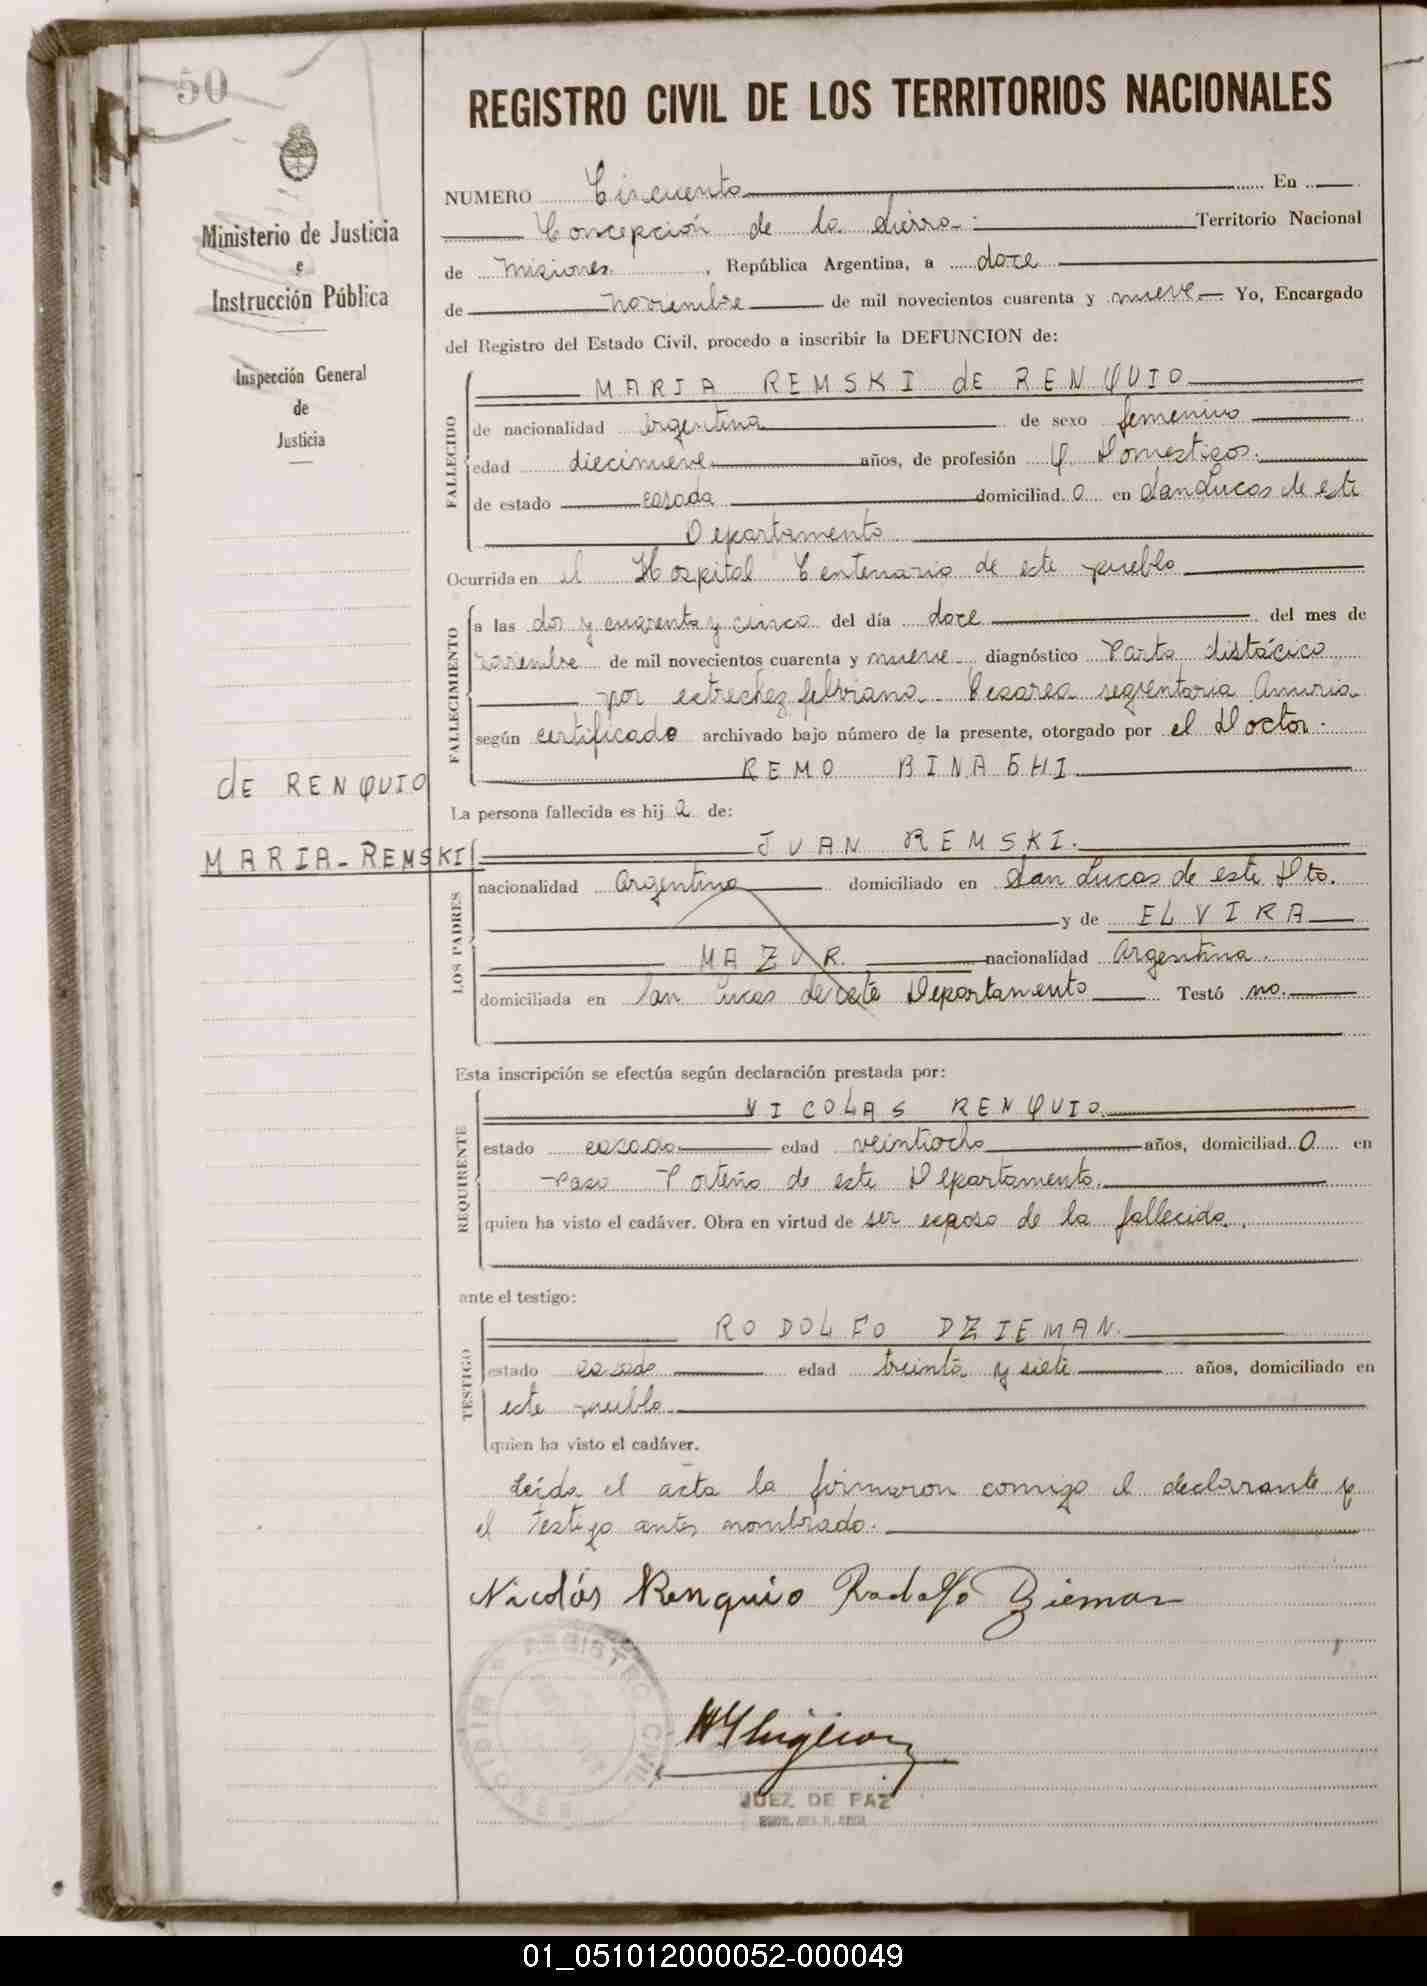 50
Ministerio de Justicia
e
Instrucción Pública
Inspección General
de
Justicia
dE RENQUIO
MARIA-REMSKI
REGISTRO CIVIL DE LOS TERRITORIOS NACIONALES
NUMERO Cincuenta En
Concepción de la Sierra.- Territorio Nacional
de Misiones, República Argentina, a doce
de noviembre de mil novecientos cuarenta y nueve Yo, Encargado
del Registro del Estado Civil, procedo a inscribir la DEFUNCION de:
FALLECIDO
MARIA REMSKI dE RENQUIO
de nacionalidad argentina de sexo femenino
edad diecinueve años, de profesión Q. Domesticos.
de estado casada domiciliad o en San Lucas de este
Departamento
Ocurrida en el Hospital Centenario de este pueblo
FALLECIMIENTO
a las dos y cuarenta y cinco del día doce del mes de
noviembre de mil novecientos cuarenta y nueve diagnóstico Parto distócico
por estrechez pelviana Cesarea segmentaria Anuria
según certificado archivado bajo número de la presente, otorgado por el Doctor.
REMO BINAGHI
La persona fallecida es hij a de:
LOS PADRES
JUAN REMSKI.
nacionalidad argentino domiciliado en San Lucas de este Dto.
y de ELVIRA
MAZUR. nacionalidad argentina.
domiciliada en San Lucas de este Departamento Testó no.
Esta inscripción se efectúa según declaración prestada por:
REQUIRENTE
NICOLAS RENQUIO
estado casado edad veintiocho años, domiciliad o en
Paso Porteño de este Departamento.
quien ha visto el cadáver. Obra en virtud de ser esposo de la fallecida.
ante el testigo:
TESTIGO
RODOLFO DZIEMAN.
estado casado edad treinta y siete años, domiciliado en
este pueblo
quien ha visto el cadáver.
Leída el acta la firmaron conmigo el declarante y
el testigo antes nombrado.
Nicolás Renquio Rodolfo Dzieman
REGISTRO CIVIL
JUEZ DE PAZ
01_051012000052-000049